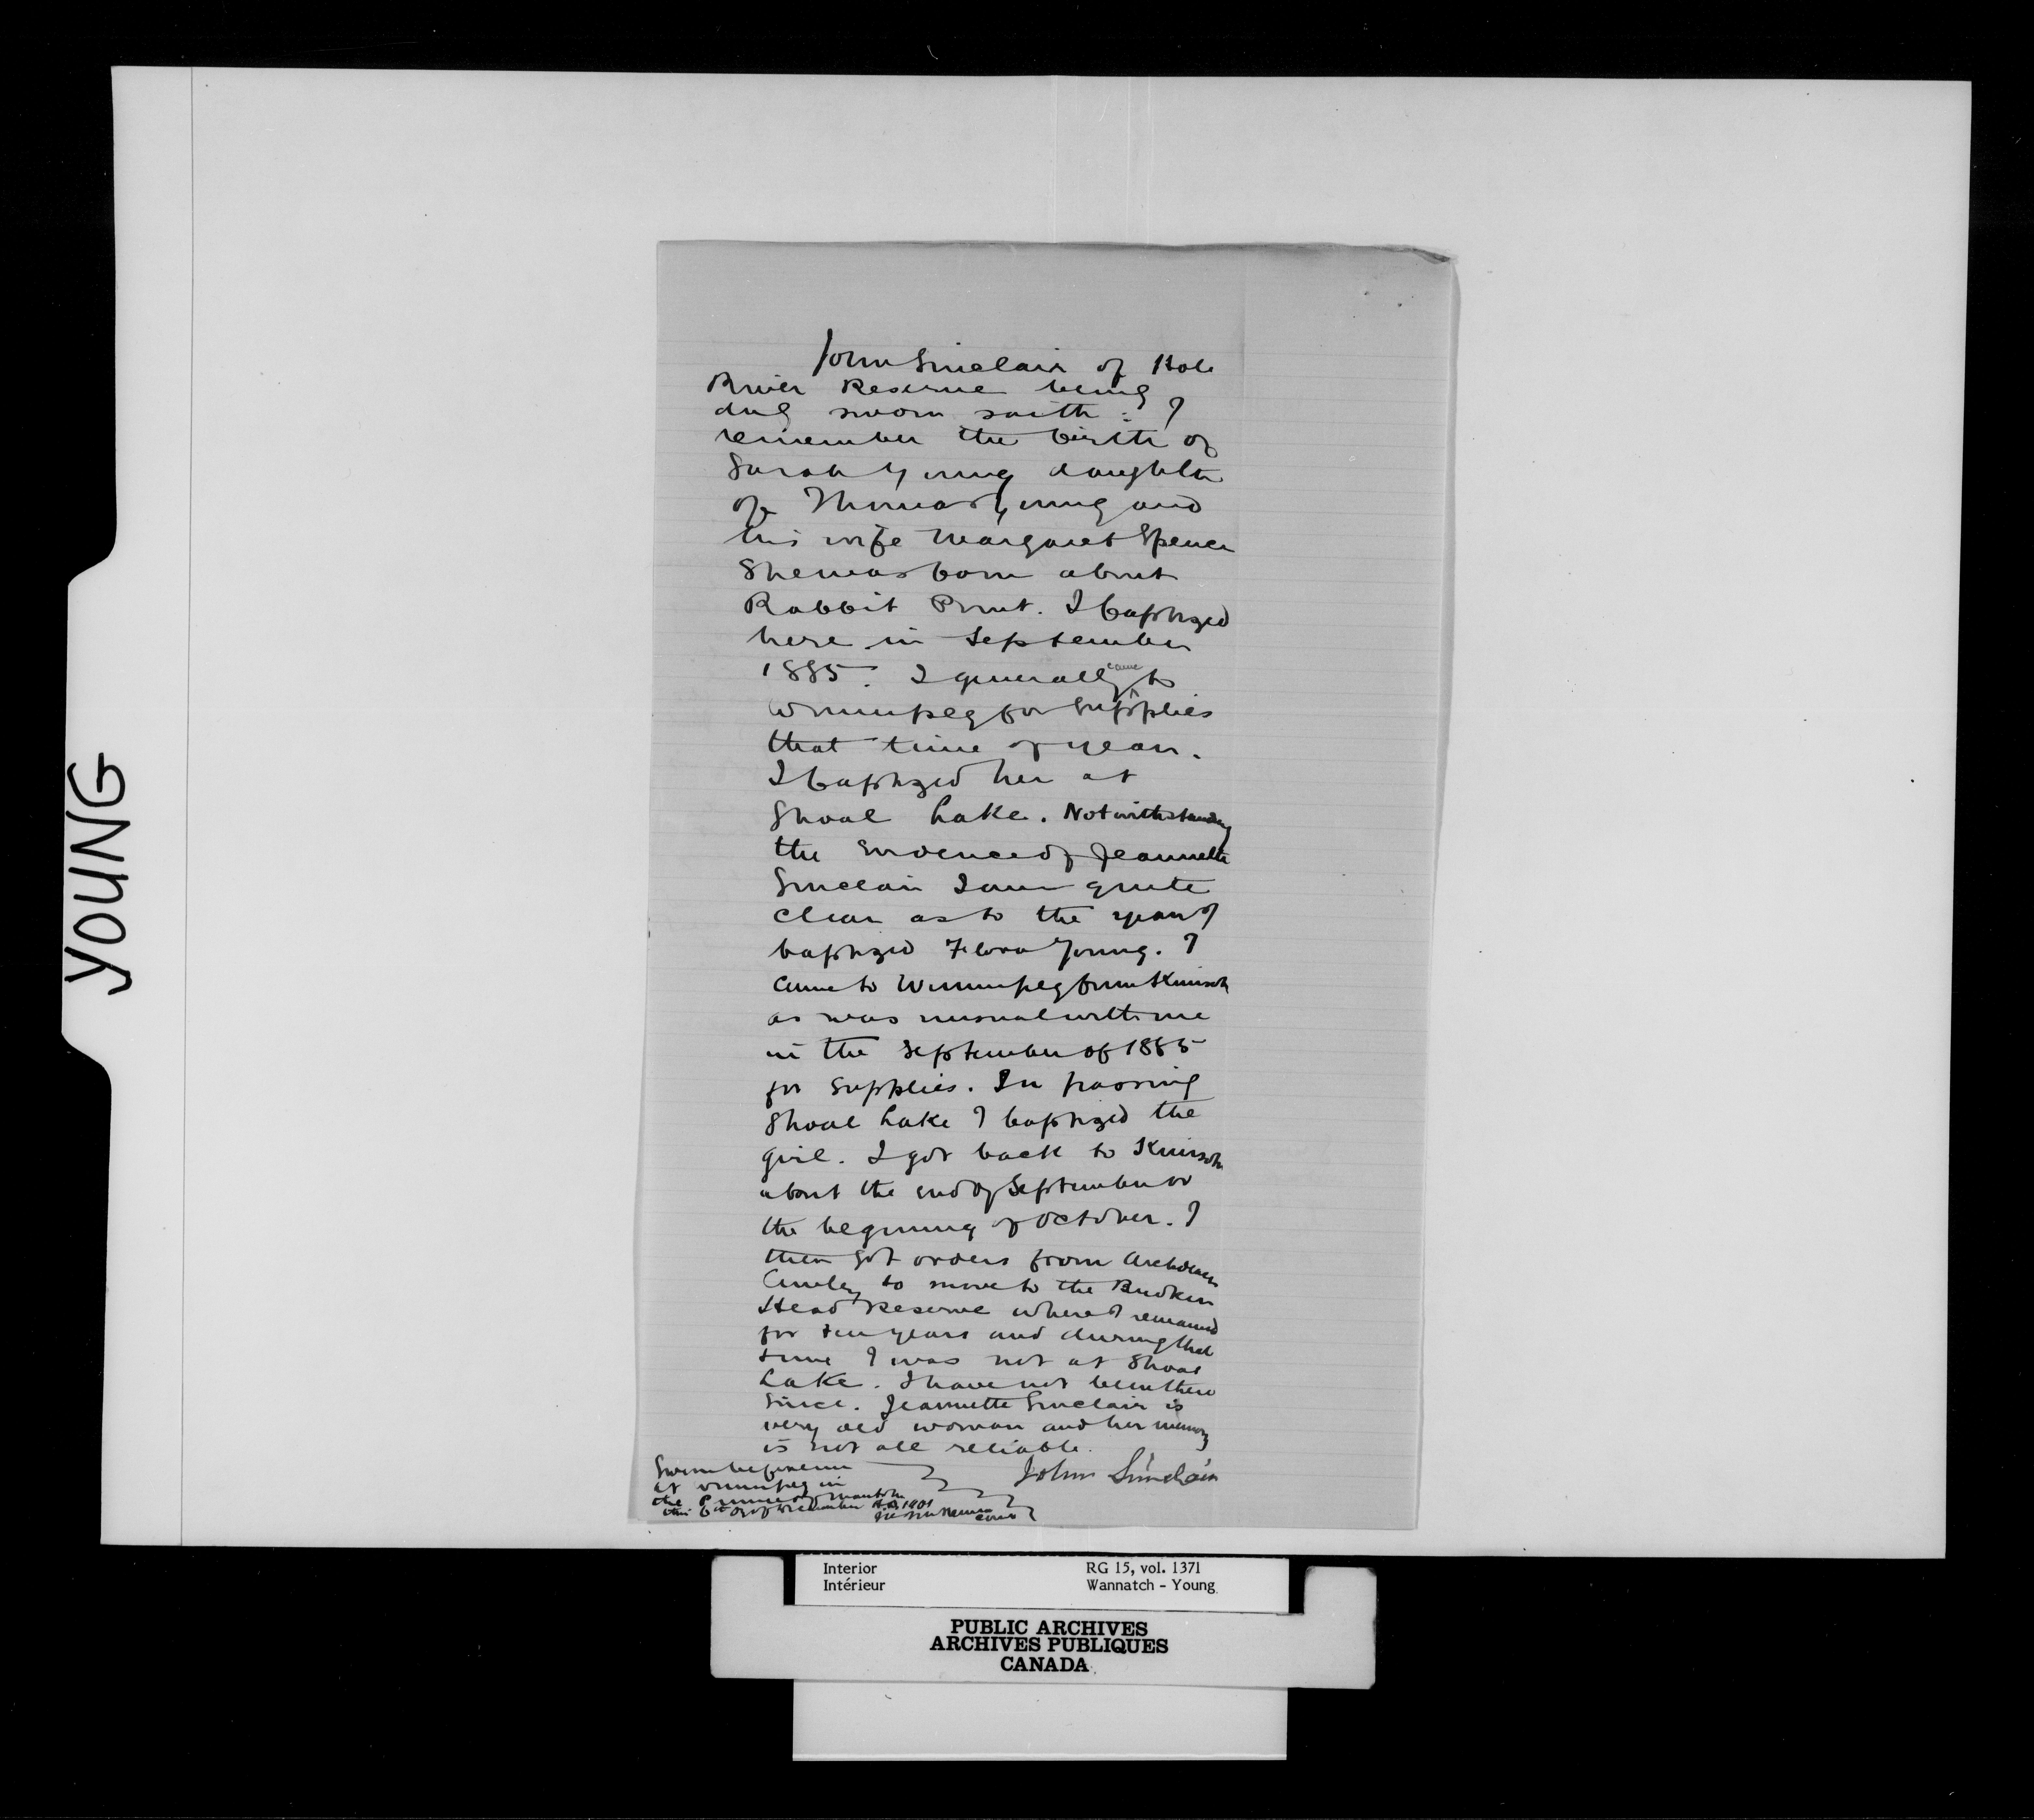 John Sinclair of Hole
River Reserve being
duly sworn saith: I
remember the birth of
Sarah Young daughter
of Thomas Young and
his wife Margaret Spence
She was born about
Rabbit Point. I baptized
here in September
1885. I generally came to
Winnipeg for supplies
that time of year.
I baptized her at
Shoal Lake. Notwithstanding
the evidence of Jeannette
Sinclair I am quite
clear as to the year I
baptized Flora Young. I
came to Winnipeg from
as was usual with me
in the September of 1885
for supplies. In passing
Shoal Lake I baptized the
girl. I got back to
about the end of September or
the begining of October. I
then got orders from Archdeacon
to move to the Broken
Head Reserve where I remained
for ten years and during that
time I was not at Shoal
Lake. I have not been there
since. Jeannette Sinclair is
very old woman and her memory
is not all reliable.
John Sinclair
Sworn before me
at Winnipeg in
the Province of Manitoba
this 6th day of December A.D. 1901
YOUNG
Interior RG 15, vol. 1371
Intérieur Wannatch - Young
PUBLIC ARCHIVES
ARCHIVES PUBLIQUES
CANADA